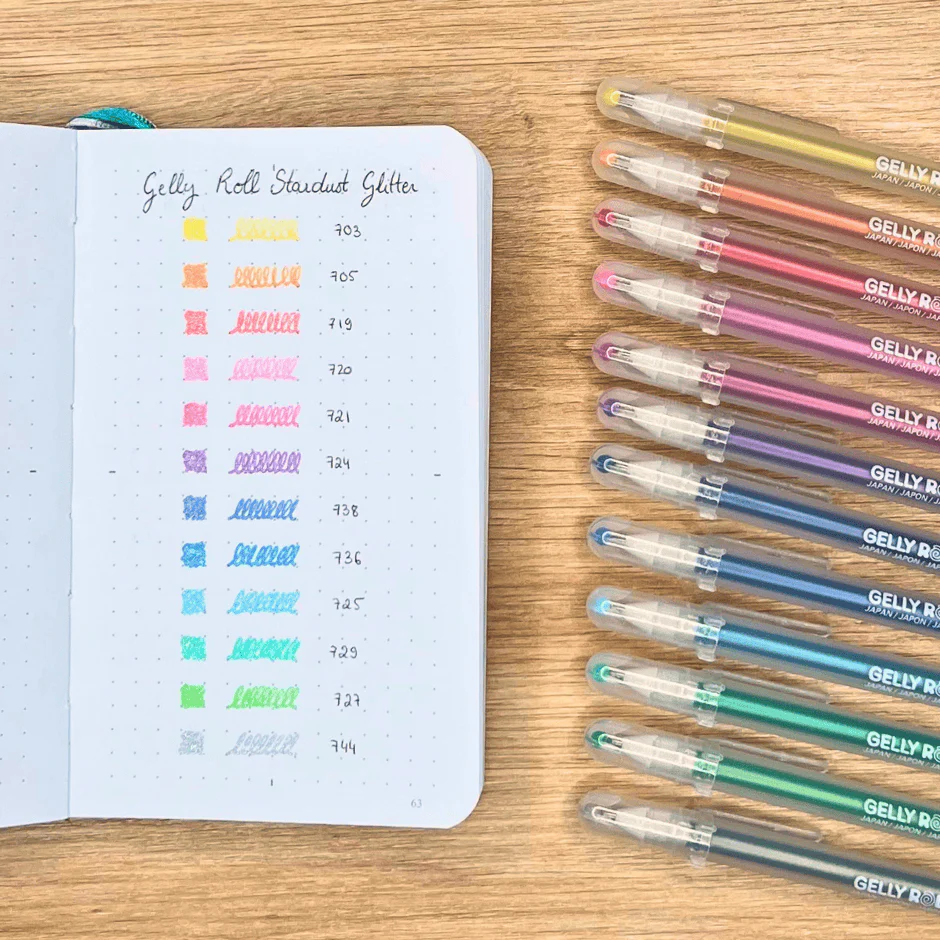 Gelly Roll Stardust Glitter
703
705
719
720
721
724
738
736
725
729
727
744
63
GELLY
JAPAN / JAPON /
GELLY
JAPAN / JAPON /
GELLY
JAPAN / JAPON /
GELLY
JAPAN / JAPON /
GELLY
JAPAN / JAPON /
GELLY
JAPAN / JAPON /
GELLY
JAPAN / JAPON /
GELLY
JAPAN / JAPON /
GELLY
JAPAN / JAPON /
GELLY
JAPAN / JAPON /
GELLY
JAPAN / JAPON /
GELLY